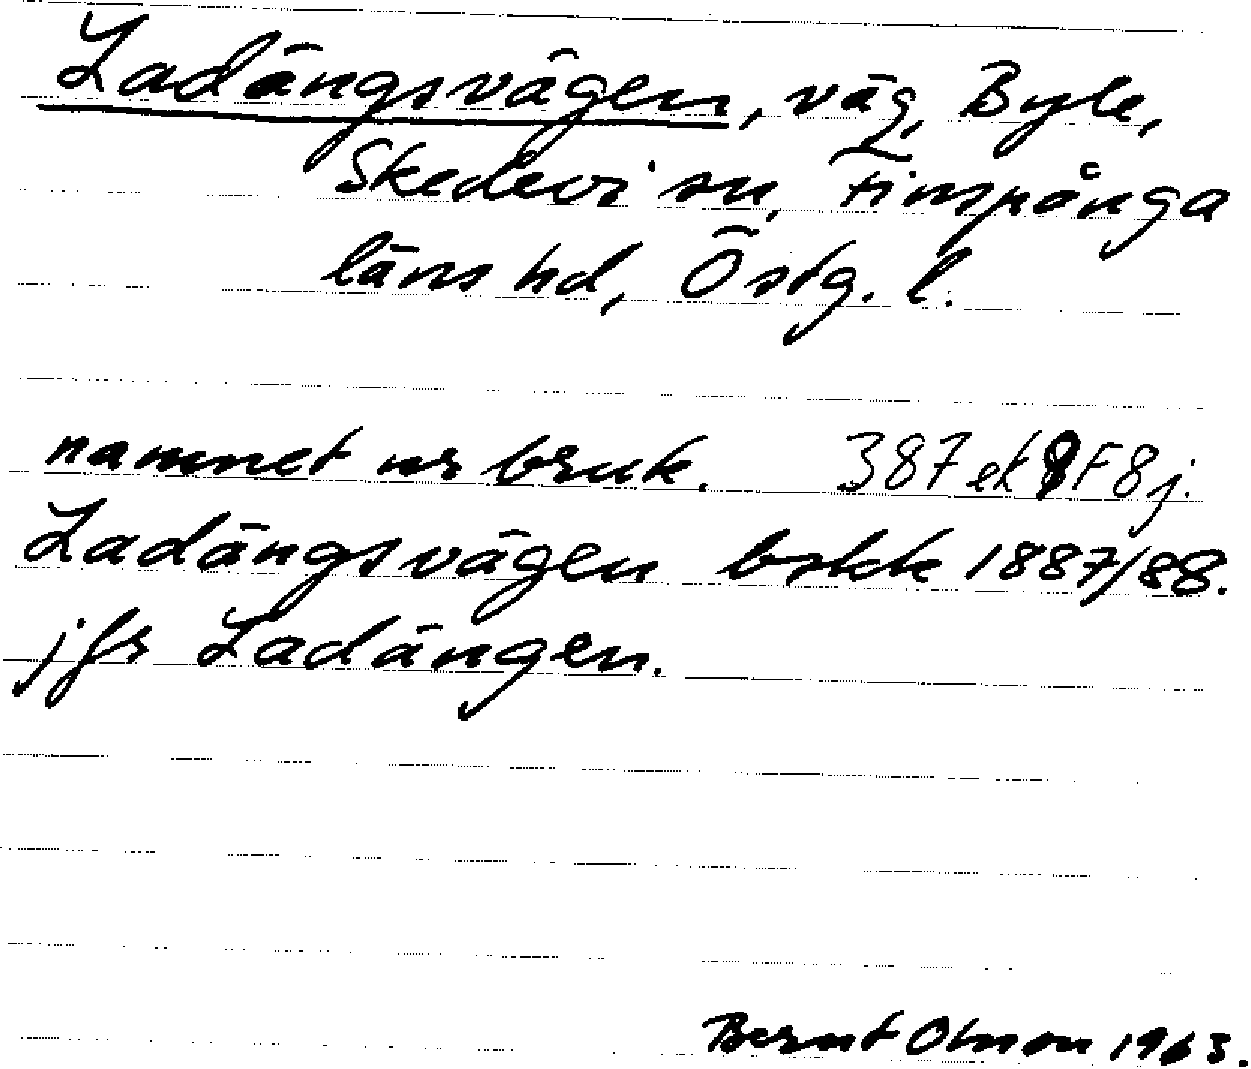 Ladängsvägen, väg, Byle,
Skedevi sn, Finspånga
läns hd, Östg. l.
namnet ur bruk. 387 ek 9F8j.
Ladängsvägen bskk 1887/88.
jfr Ladängen.
Bernt Olsson 1963.